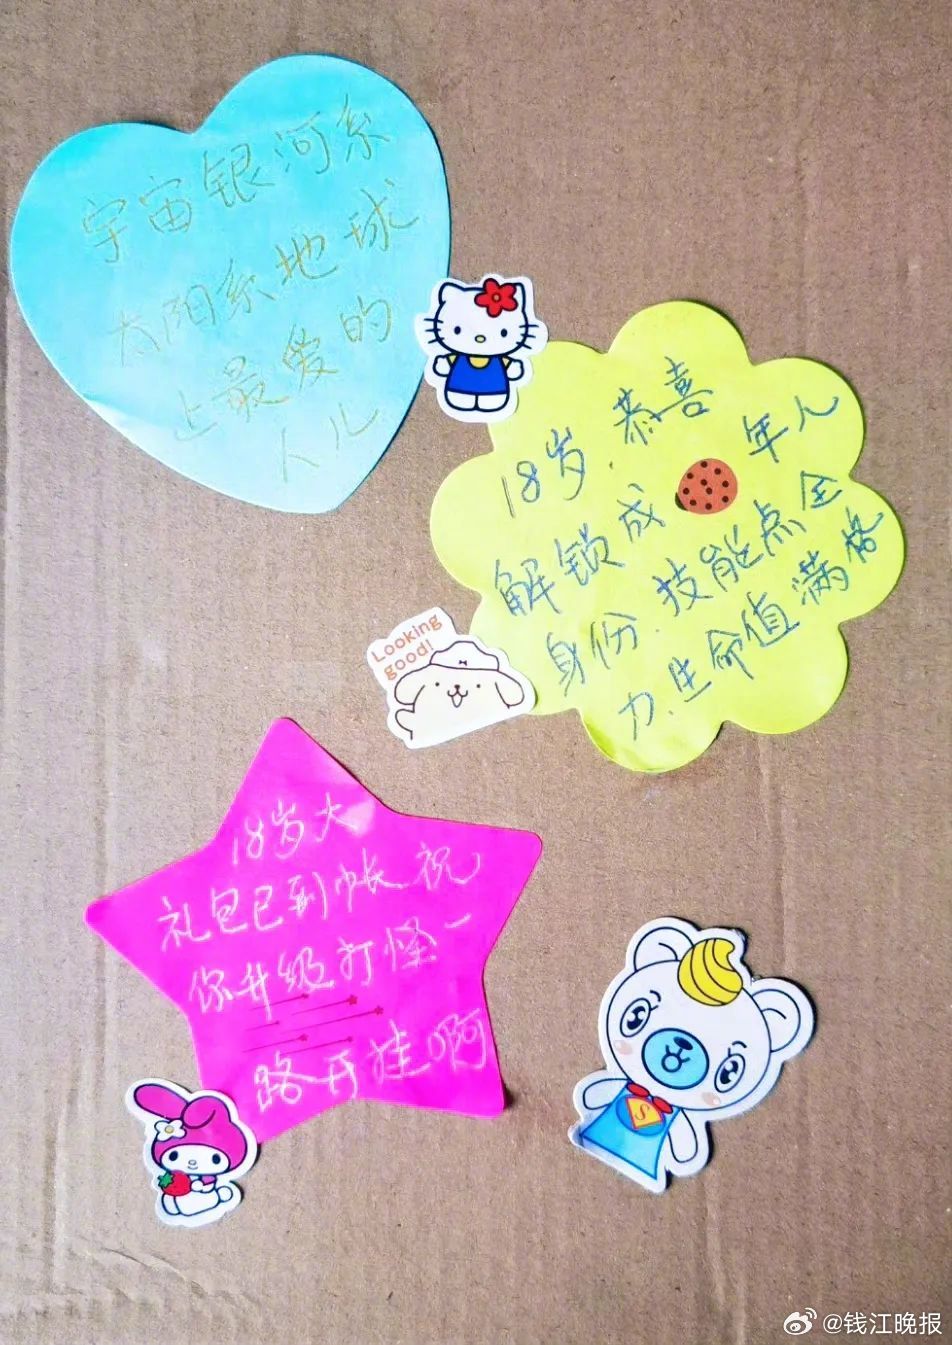 宇宙银河系
太阳系地球
上最爱的
人儿
18岁.恭喜
解锁成年人
身份.技能点全
力.生命值满格
Looking
good!
18岁大
礼包已到帐祝
你升级打怪一
路开挂啊
S
@钱江晚报